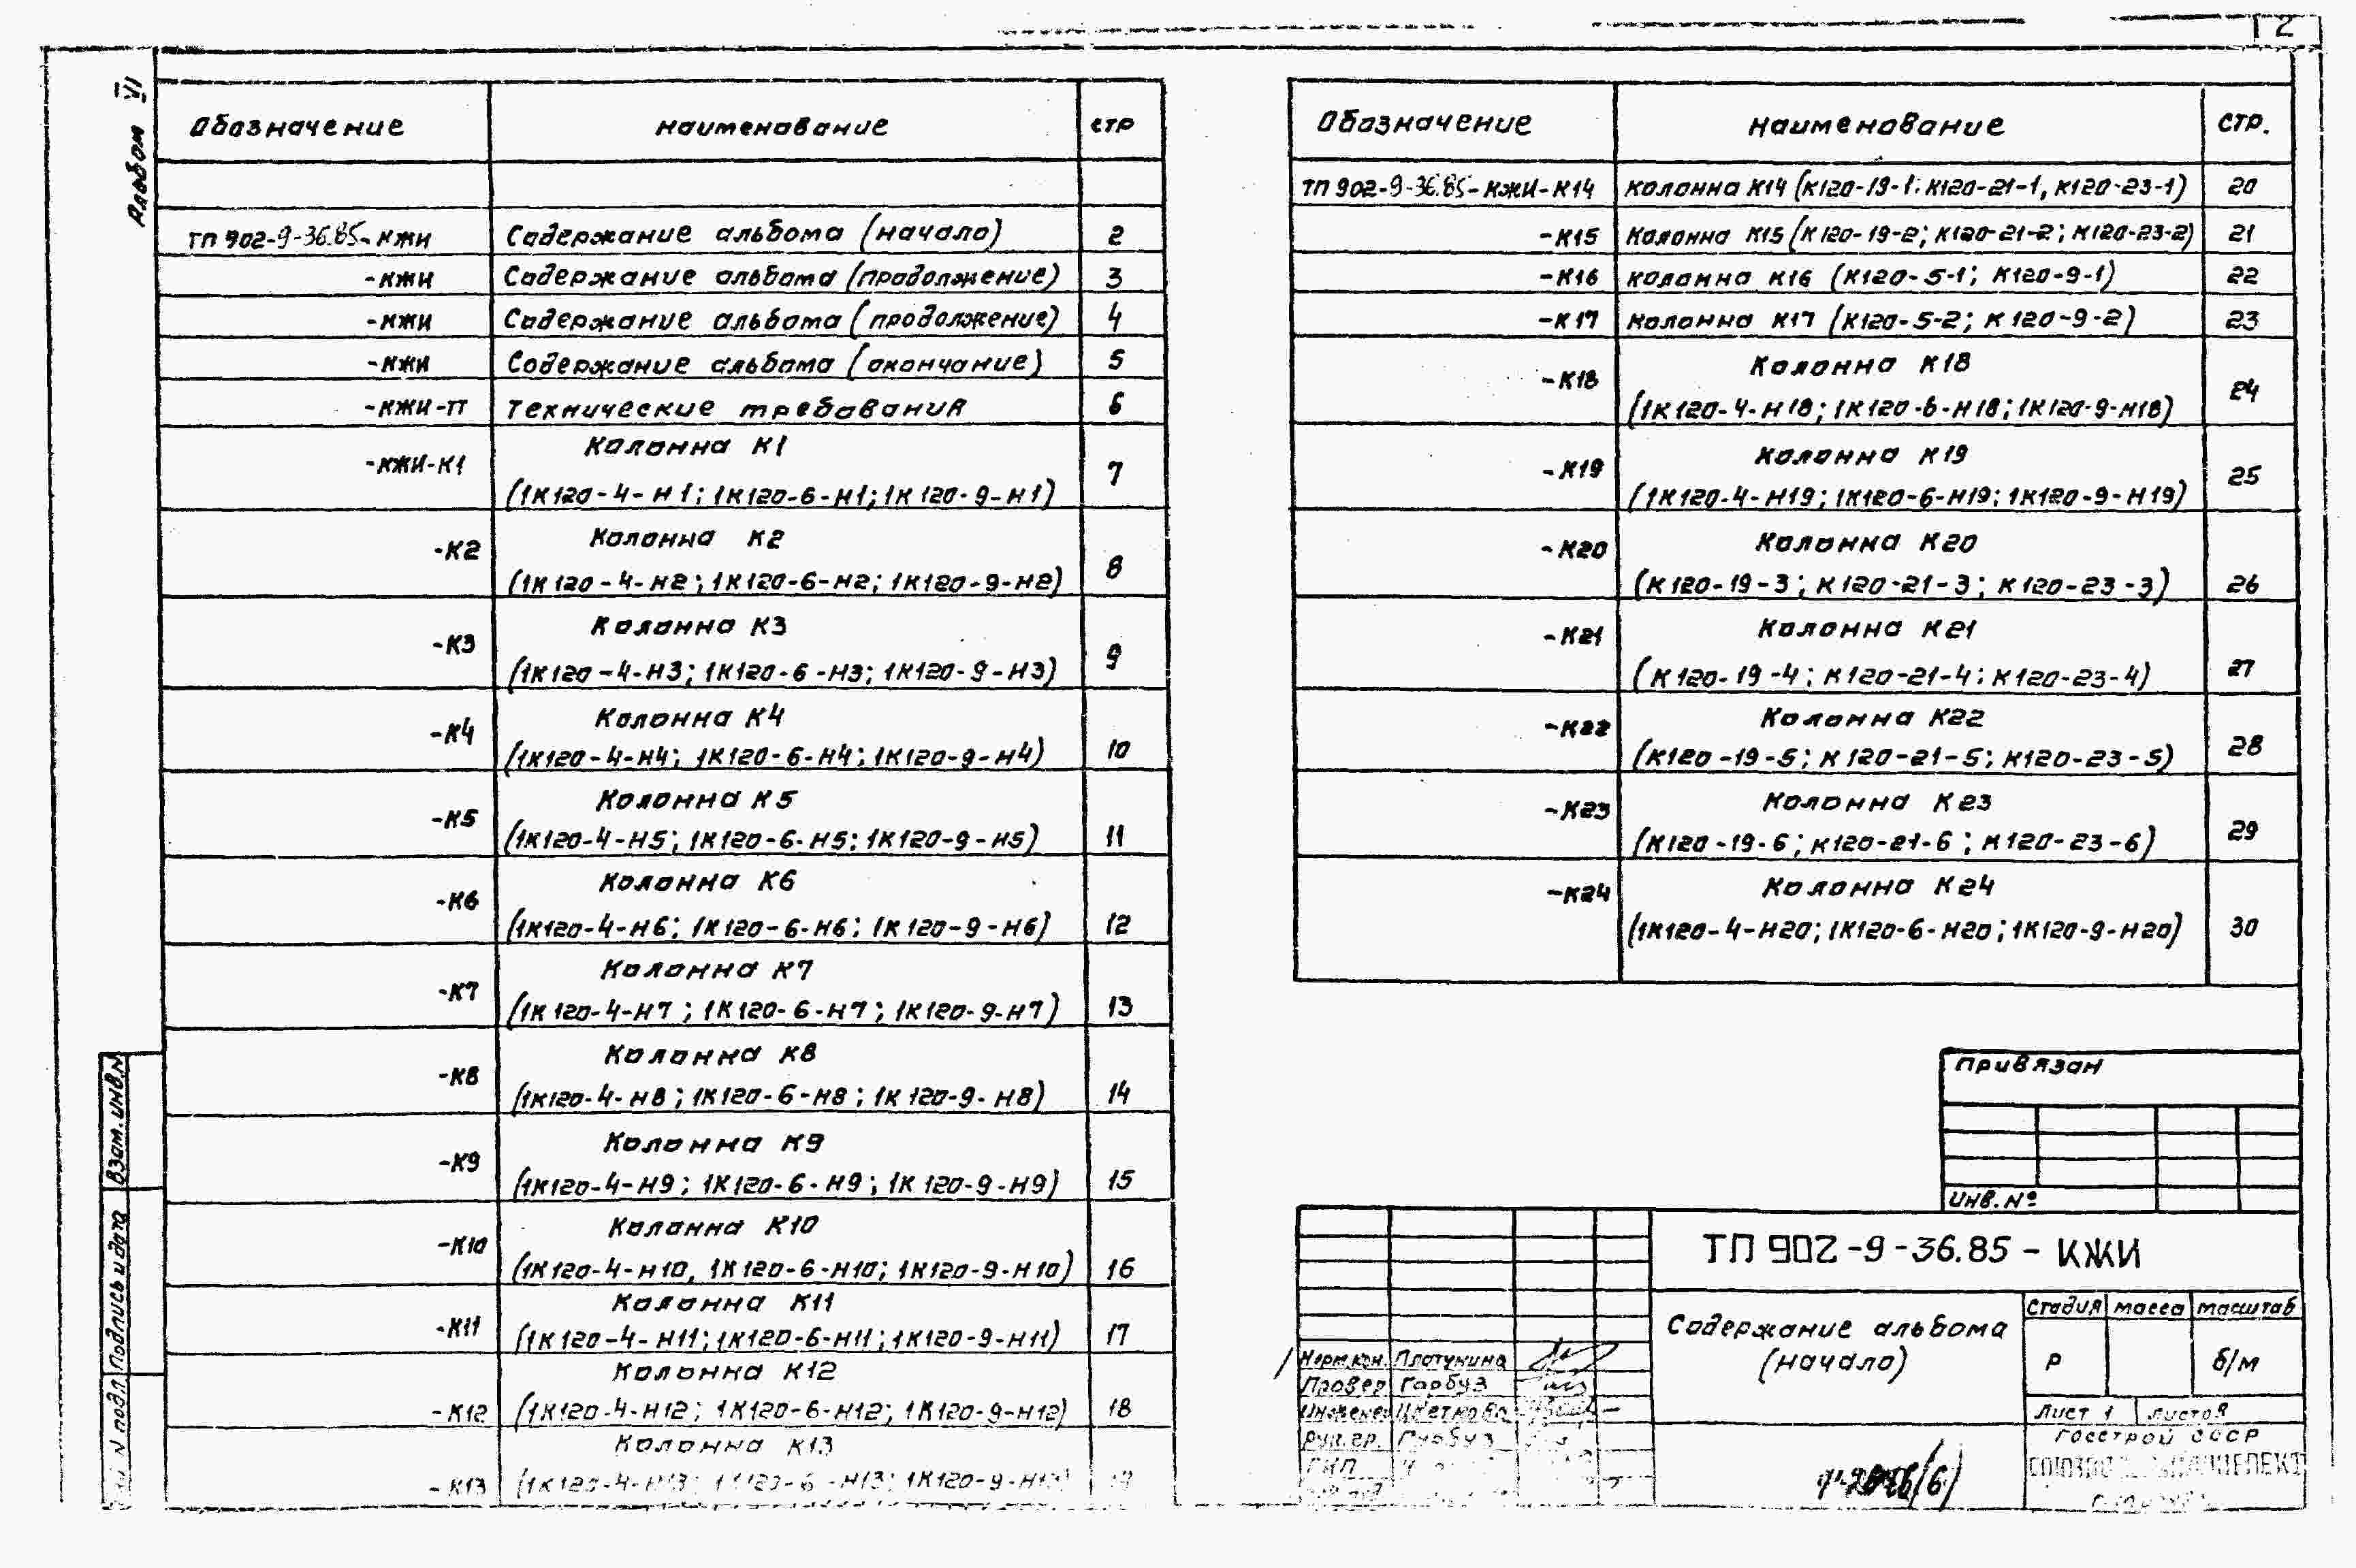 2
Альбом VI
Обозначение наименование стр
ТП 902-9-36.85-КЖИ Содержание альбома (начало) 2
-КЖИ Содержание альбома (продолжение) 3
-КЖИ Содержание альбома (продолжение) 4
-КЖИ Содержание альбома (окончание) 5
-КЖИ-ТТ Технические требования 6
Колонна К1
-КЖИ-К1 7
(1К120-4-Н1; 1К120-6-Н1; 1К120-9-Н1)
Колонна К2
-К2 8
(1К120-4-Н2; 1К120-6-Н2; 1К120-9-Н2)
Колонна К3
-К3 9
(1К120-4-Н3; 1К120-6-Н3; 1К120-9-Н3)
Колонна К4
-К4
(1К120-4-Н4; 1К120-6-Н4; 1К120-9-Н4) 10
Колонна К5
-К5
(1К120-4-Н5; 1К120-6-Н5; 1К120-9-Н5) 11
Колонна К6
-К6
(1К120-4-Н6; 1К120-6-Н6; 1К120-9-Н6) 12
Колонна К7
-К7
(1К120-4-Н7; 1К120-6-Н7; 1К120-9-Н7) 13
Колонна К8
-К8
(1К120-4-Н8; 1К120-6-Н8; 1К120-9-Н8) 14
Колонна К9
-К9
(1К120-4-Н9; 1К120-6-Н9; 1К120-9-Н9) 15
Колонна К10
-К10
(1К120-4-Н10, 1К120-6-Н10; 1К120-9-Н10) 16
Колонна К11
-К11
(1К120-4-Н11; 1К120-6-Н11; 1К120-9-Н11) 17
Колонна К12
-К12 (1К120-4-Н12; 1К120-6-Н12; 1К120-9-Н12) 18
Колонна К13
-К13 (1К120-4-Н13; 1К120-6-Н13; 1К120-9-Н13) 19
Обозначение наименование стр.
ТП 902-9-36.85-КЖИ-К14 Колонна К14 (К120-19-1; К120-21-1, К120-23-1) 20
-К15 Колонна К15 (К120-19-2; К120-21-2; К120-23-2) 21
-К16 Колонна К16 (К120-5-1; К120-9-1) 22
-К17 Колонна К17 (К120-5-2; К120-9-2) 23
Колонна К18
-К18 24
(1К120-4-Н18; 1К120-6-Н18; 1К120-9-Н18)
Колонна К19
-К19 25
(1К120-4-Н19; 1К120-6-Н19; 1К120-9-Н19)
-К20 Колонна К20
(К120-19-3; К120-21-3; К120-23-3) 26
-К21 Колонна К21
(К120-19-4; К120-21-4; К120-23-4) 27
-К22 Колонна К22
(К120-19-5; К120-21-5; К120-23-5) 28
-К23 Колонна К23
(К120-19-6; К120-21-6; К120-23-6) 29
-К24 Колонна К24
(1К120-4-Н20; 1К120-6-Н20; 1К120-9-Н20) 30
Привязан
Инв.№
ТП 902-9-36.85-КЖИ
Содержание альбома
(начало)
стадия масса масштаб
Р б/м
Лист 1 Листов
Госстрой СССР
Норм.кон. Платунина
Провер Гарбуз
Инженер Цветкова
Рук.гр. Гурбуз
ГИП
Взам.инв.N
Подпись и дата
N подл